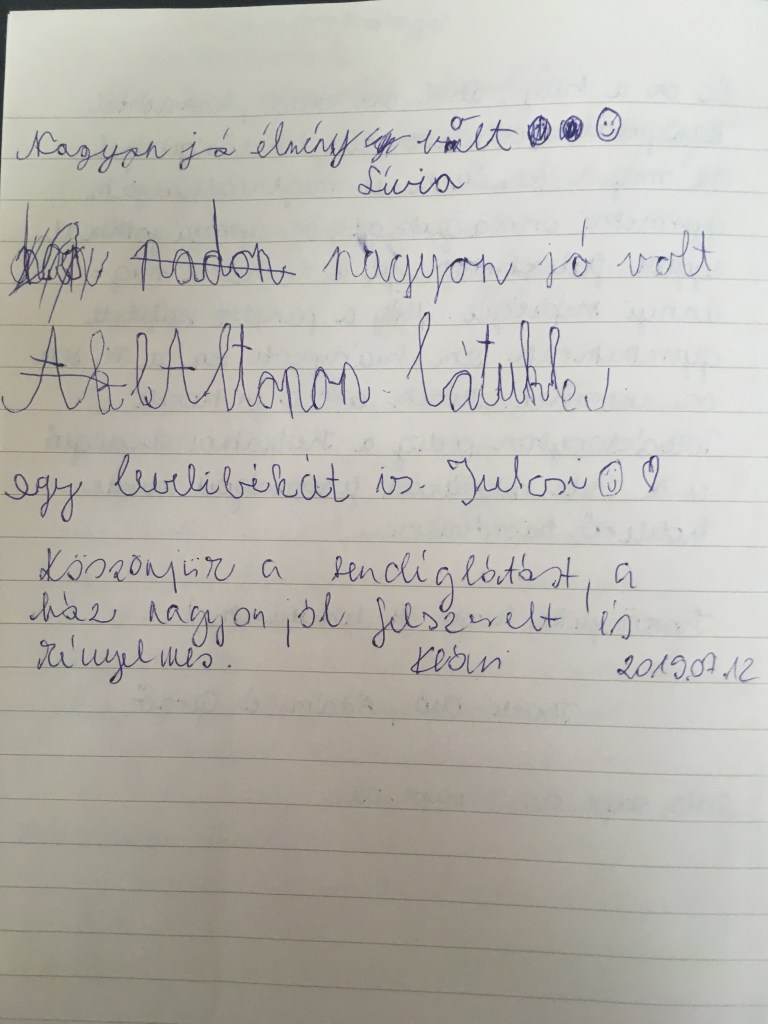 Nagyon jó élmény volt ☺
Lívia
nadon nagyon jó volt
látunk
egy levelibékát is. Julcsi ☺ ♡
Köszönjük a vendéglátást, a
ház nagyon jól felszerelt és
kényelmes. 2019.07.12